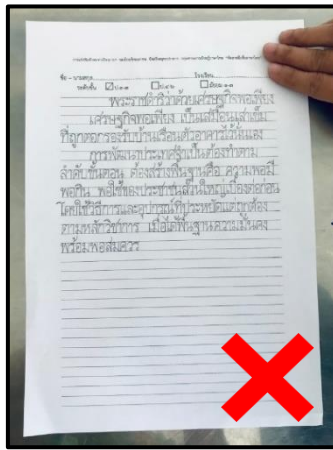 ชื่อ - นามสกุล โรงเรียน
ระดับชั้น ☑ ป.๑-๓ ☐ ป.๔-๖ ☐ มัธยม ๑-๓
พระราชดำริว่าด้วยเศรษฐกิจพอเพียง
เศรษฐกิจพอเพียง เป็นเสมือนเสาเข็ม
ที่ถูกตอกรองรับบ้านเรือนตัวอาคารไว้นั่นเอง
การพัฒนาประเทศจำเป็นต้องทำตาม
ลำดับขั้นตอน ต้องสร้างพื้นฐานคือ ความพอมี
พอกิน พอใช้ของประชาชนส่วนใหญ่เบื้องต้นก่อน
โดยใช้วิธีการและอุปกรณ์ที่ประหยัดแต่ถูกต้อง
ตามหลักวิชาการ เมื่อได้พื้นฐานความมั่นคง
พร้อมพอสมควร